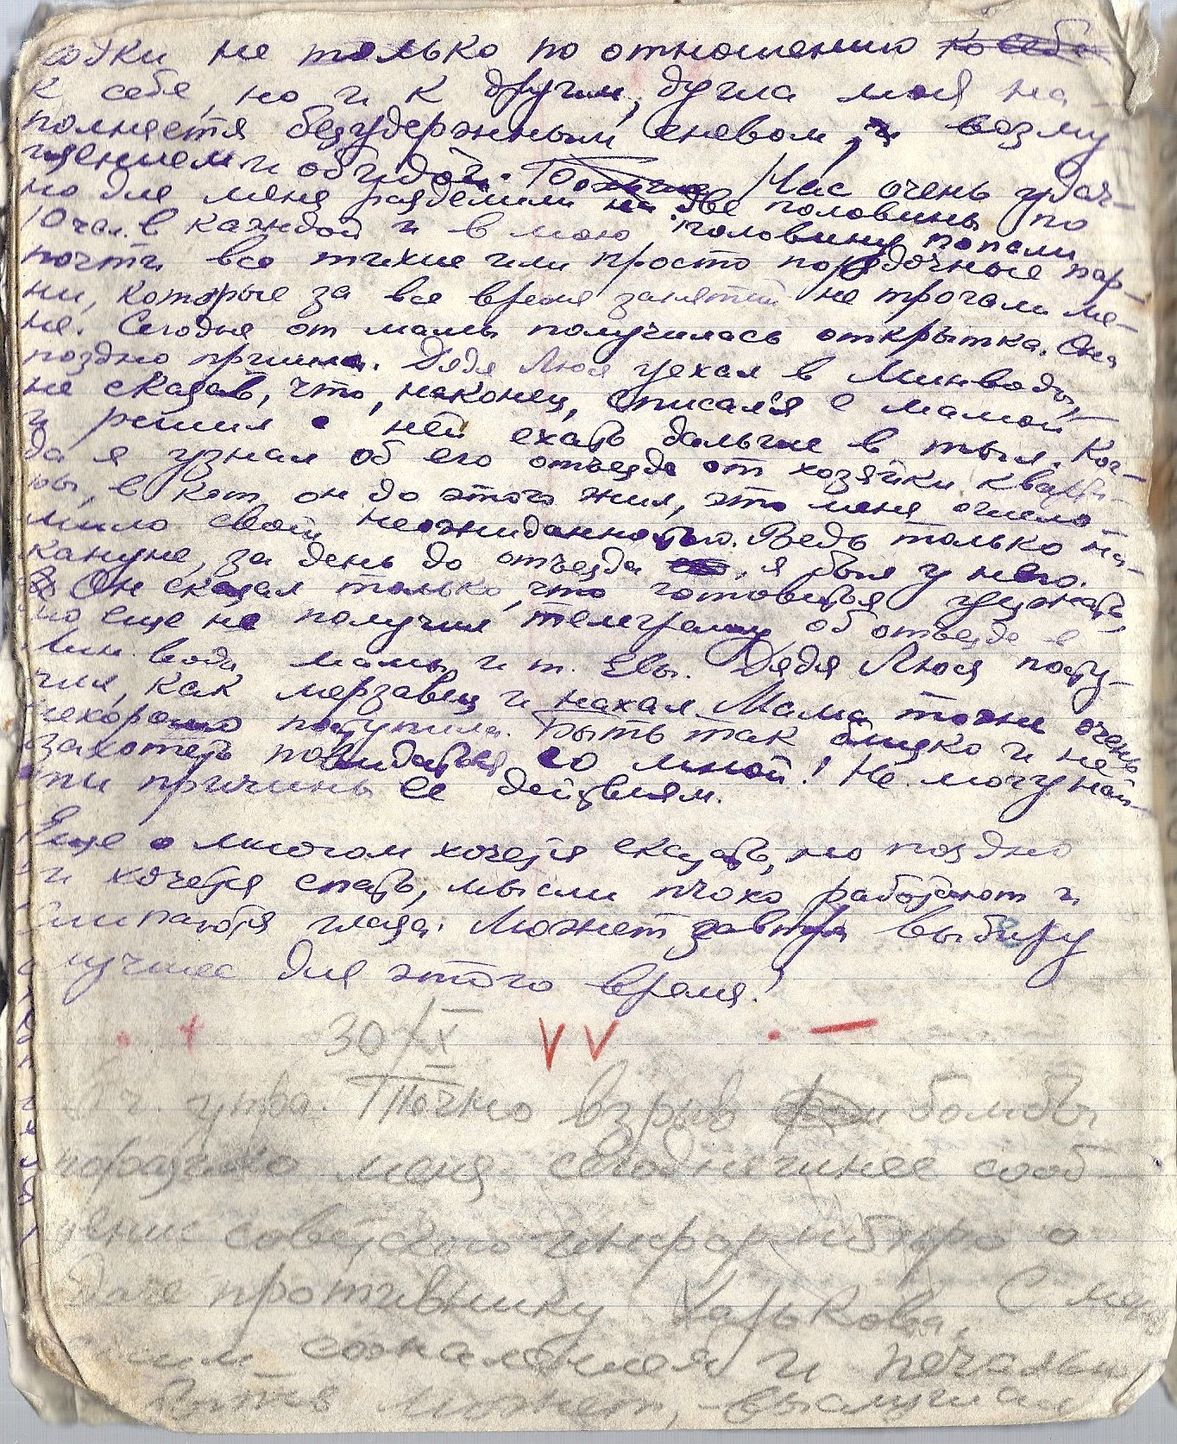 не только по отношению ко себе
к себе, но и к другим, душа моя на-
полняется безудержным гневом, и возму-
щением и обидой. Нас очень удач-
но для меня разделили на две половины по
10 чел. в каждой и в мою половину попали
почти все тихие или просто порядочные пар-
ни, которые за все время занятий не трогали ме-
ня. Сегодня от мамы получилась открытка. Она
поздно пришла. Дядя Люся уехал в Минводы,
не сказав, что, наконец, списался с мамой
и решил с ней ехать дальше в тыл. Ког-
да я узнал об его отъезде от хозяйки кварти-
ры, в кот. он до этого жил, это меня ошело-
мило своей неожиданностью. Ведь только на-
кануне, за день до отъезда, я был у него.
Он сказал только, что готовится уезжать,
но еще не получил телеграмму об отъезде в
Мин. воды мамы и т. Евы. Дядя Люся посту-
пил, как мерзавец и нахал. Мама тоже очень
нехорошо поступила. Быть так близко и не
захотеть повидаться со мной! Не могу най-
ти причины ее действиям.
Еще о многом хочется сказать, но поздно
и хочется спать, мысли плохо работают и
слипаются глаза. Может завтра выберу
лучшее для этого время!
30/X
6 ч. утра. Точно взрыв бомбы
поразило меня сегодняшнее сооб-
щение советского информбюро о
сдаче противнику Харькова. С
сожаления и печали
Быть может, выслушал